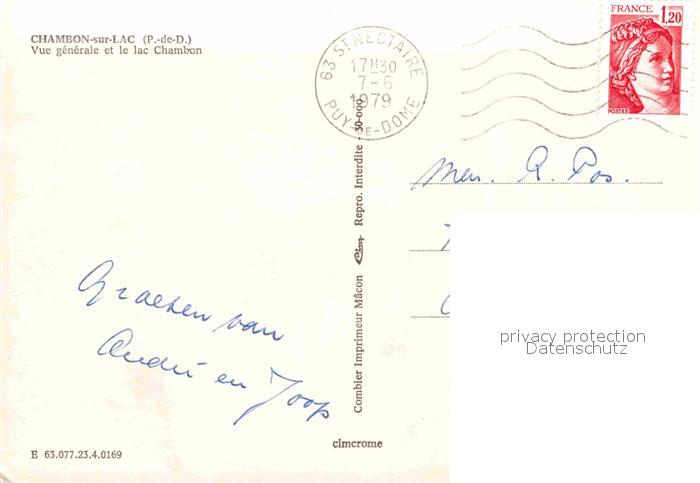 CHAMBON-sur-LAC (P.-de-D.)
Vue générale et le lac Chambon
63 ST NECTAIRE
17H30
7-6
1979
PUY-DE-DOME
FRANCE
1,20
POSTES
Men. R. Pos.
Groeten van
André en Joop
Combier Imprimeur Mâcon Cim Repro. Interdite - 30-000
cimcrome
E 63.077.23.4.0169
privacy protection
Datenschutz